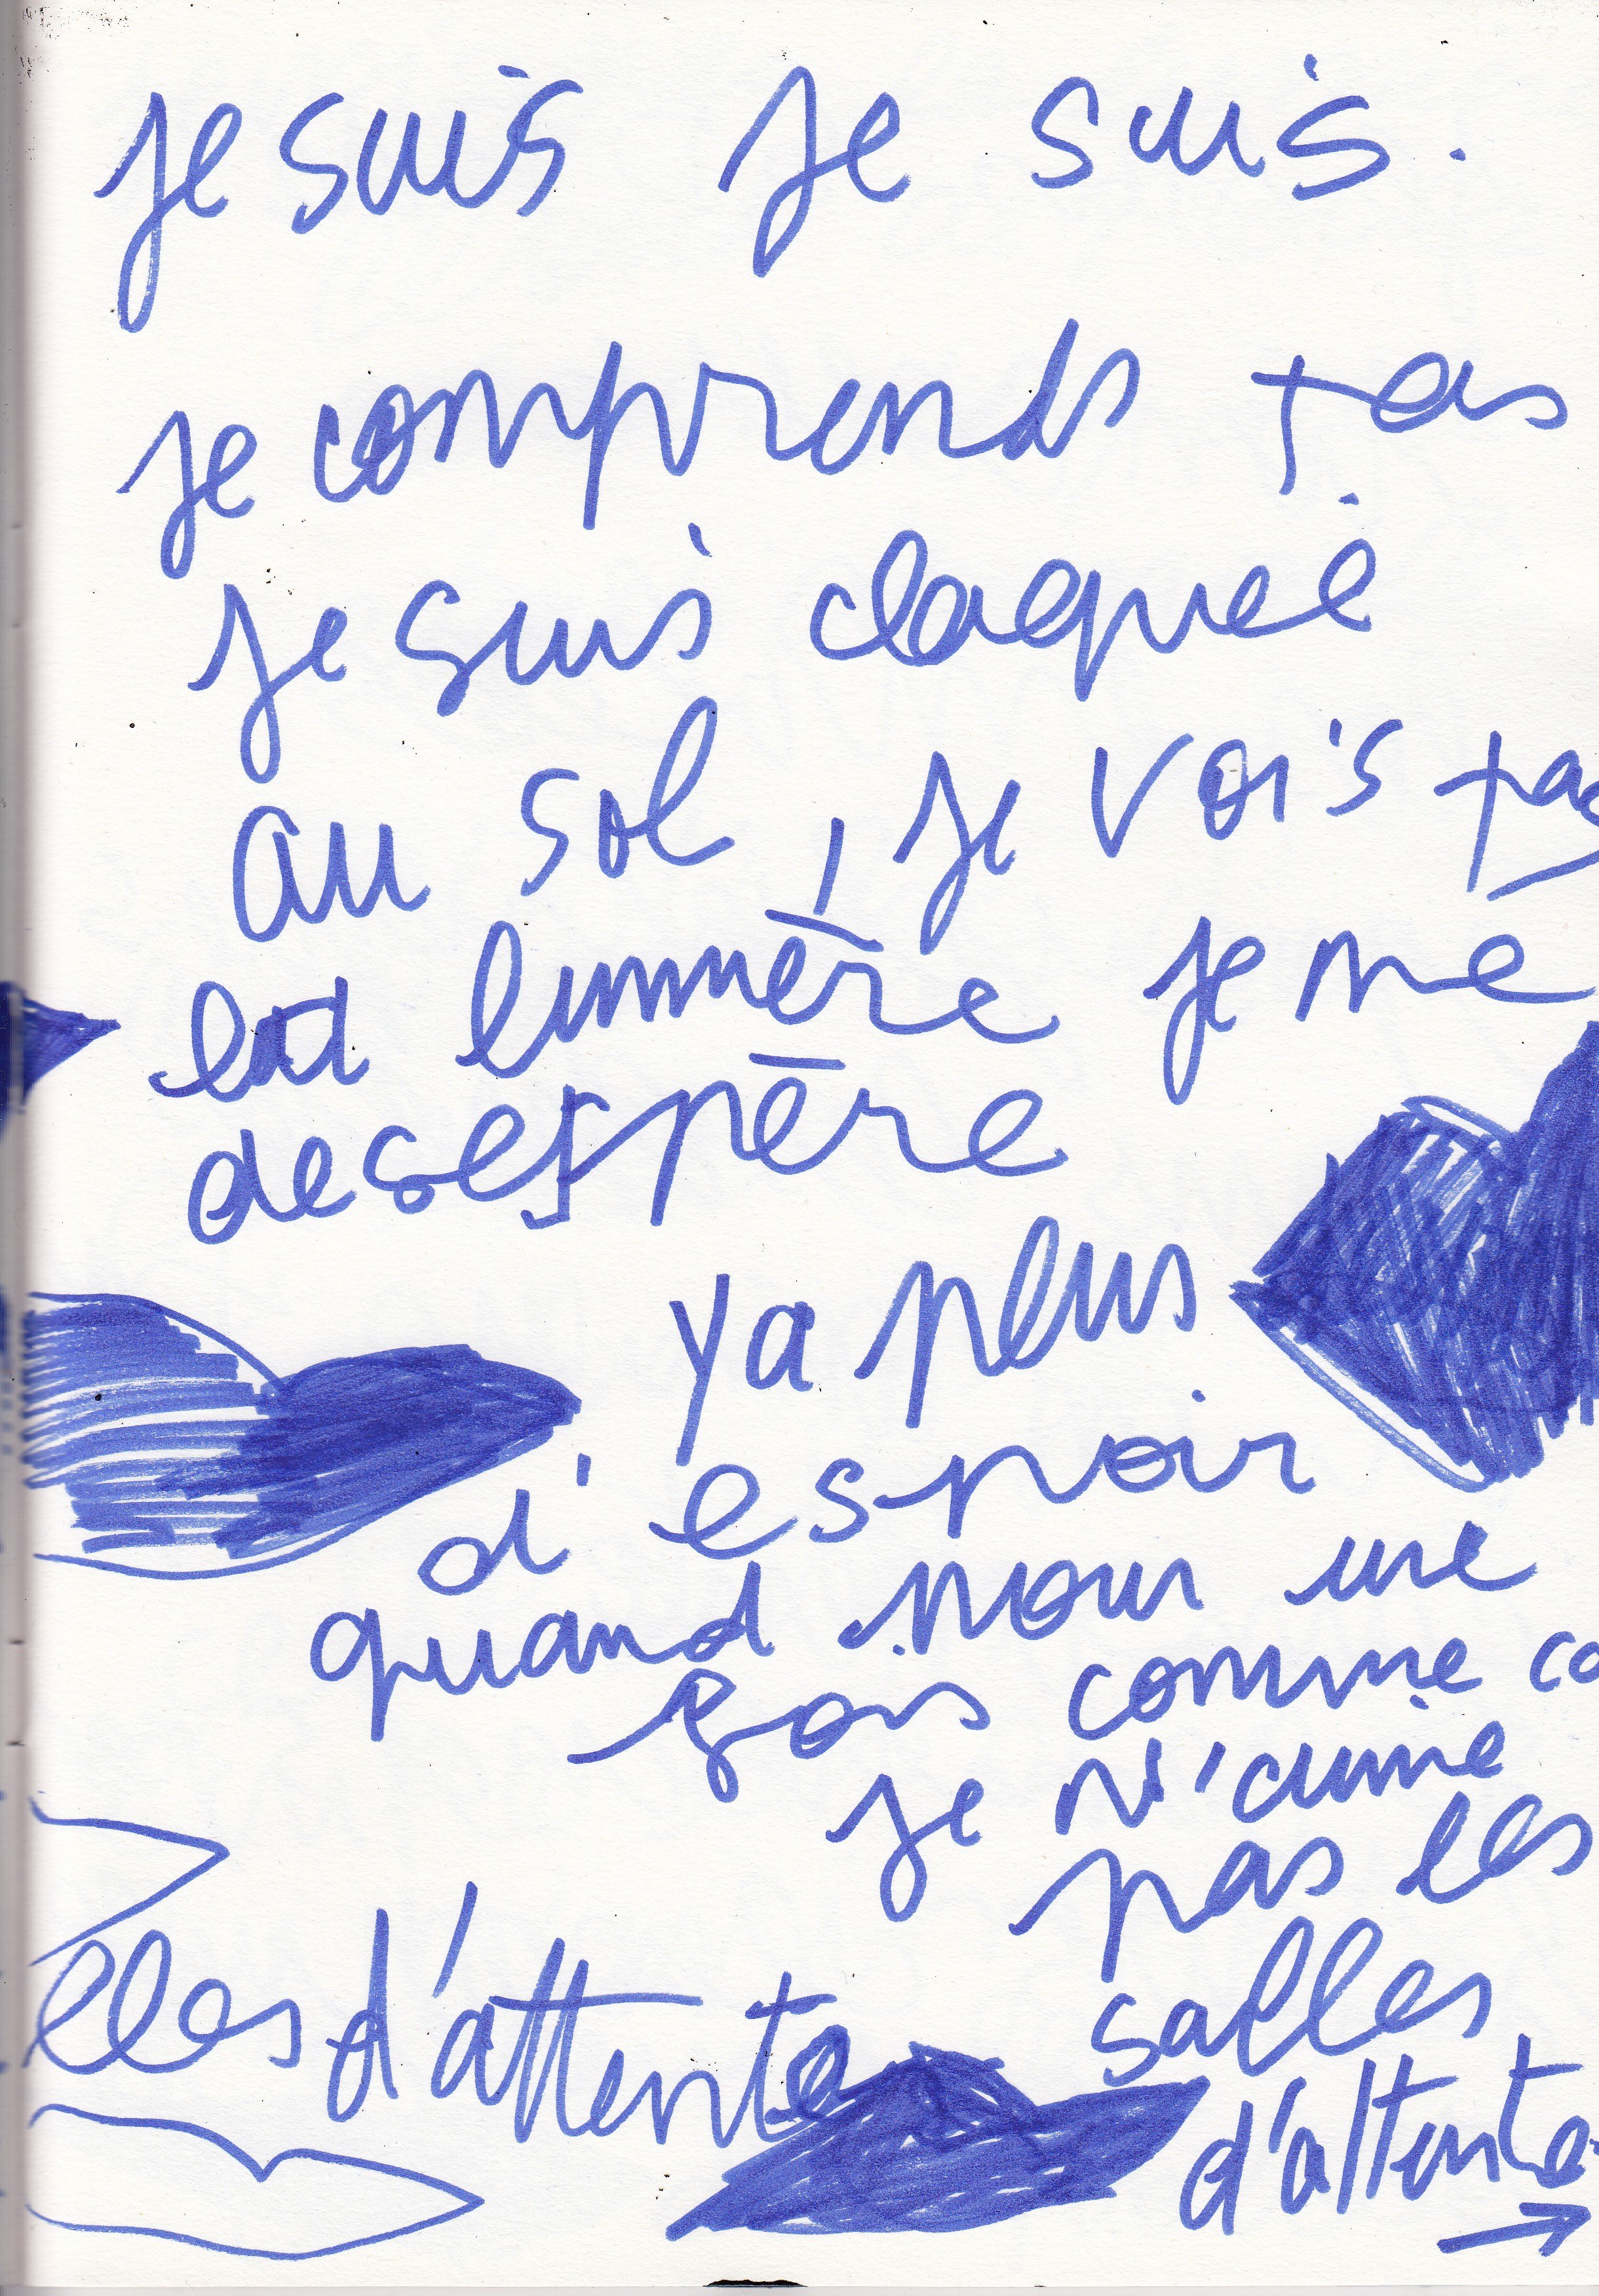 je suis je suis.
je comprends pas
je suis claqué
au sol, je vois pas
la lumière je me
desespère
ya plus
d'espoir
quand pour une
fois comme ca
je n'aime
pas les
salles
d'attente
elles d'attente